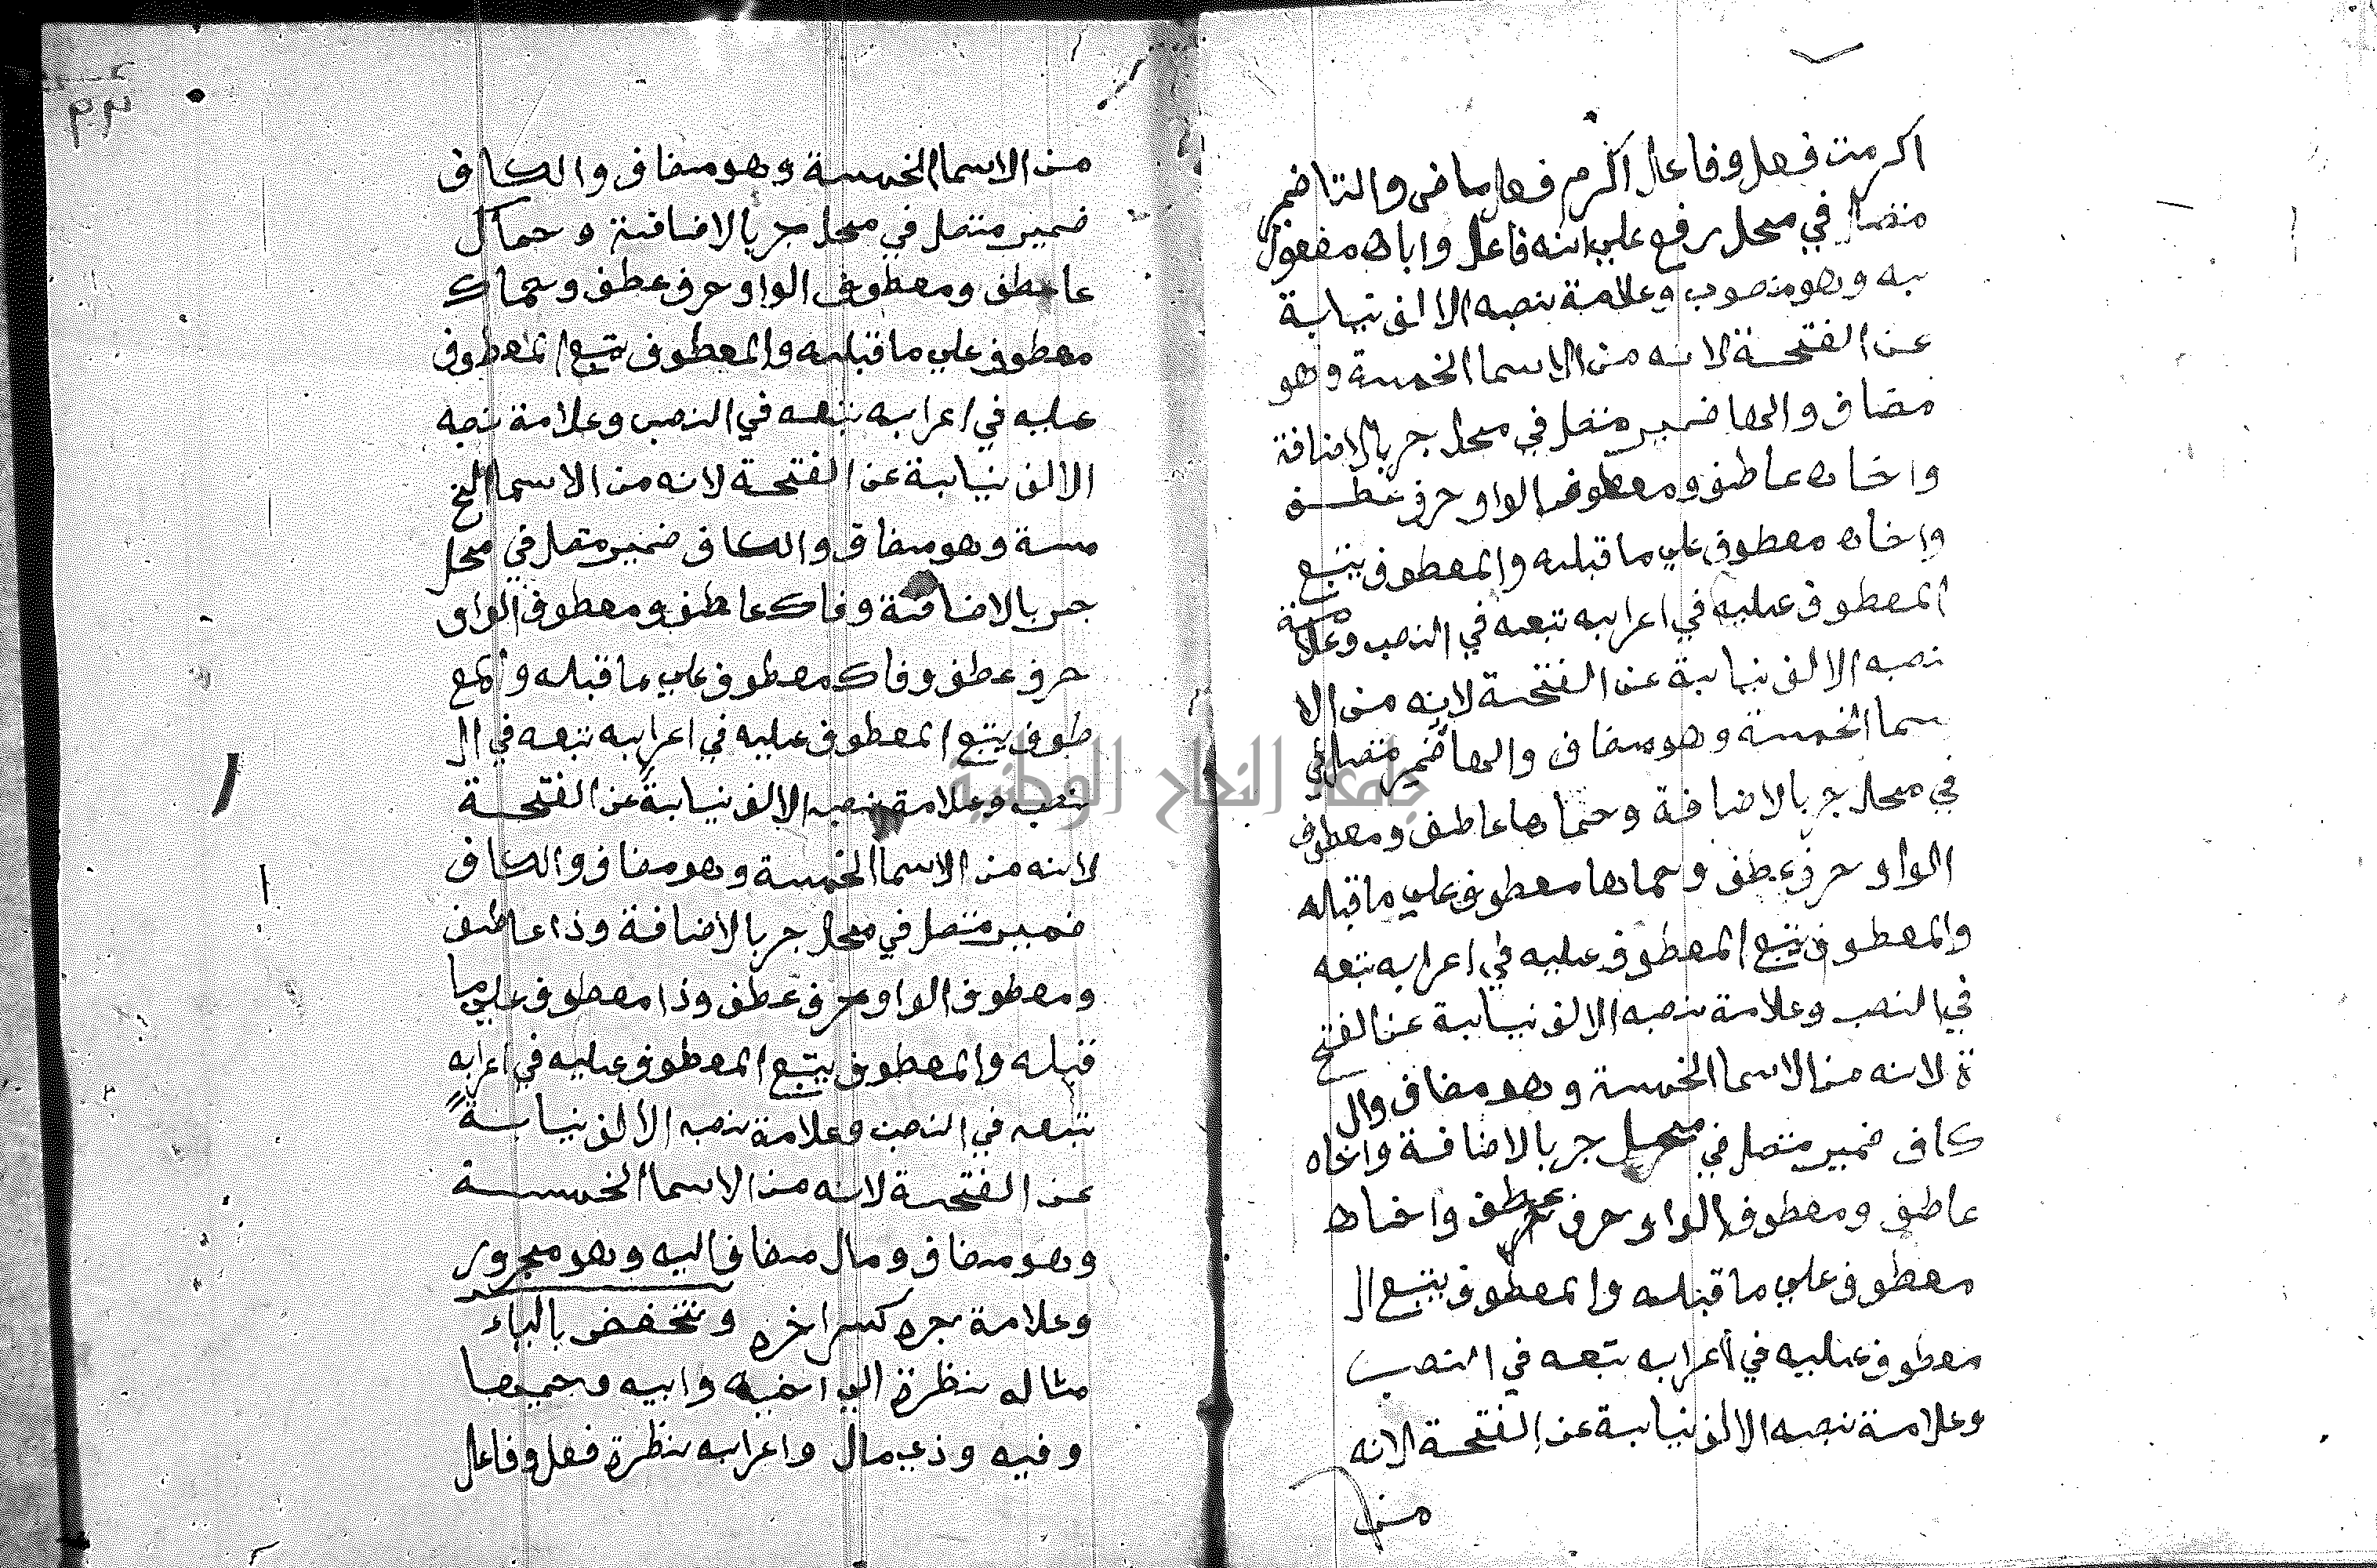 اكرمت فعل وفاعل اكرم فعل ماضى والتا ضمير
متصل في محل رفع علي انه فاعل واباه مفعول
به وهو منصوب وعلامة نصبه الالف نيابة
عن الفتحة لانه من الاسما الخمسة وهو
مضاف والها ضمير متصل في محل جر بالاضافة
واخاه عاطف ومعطوف الواو حرف عطف
واخاه معطوف علي ما قبله والمعطوف يتبع
المعطوف عليه في اعرابه تبعه في النصب وعلامة
نصبه الالف نيابة عن الفتحة لانه من الا
سما الخمسة وهو مضاف والها ضمير متصل في
في محل جر بالاضافة وحماها عاطف ومعطوف
الواو حرف عطف وحماها معطوف علي ما قبله
والمعطوف يتبع المعطوف عليه في اعرابه تبعه
في النصب وعلامة نصبه الالف نيابة عن الفتح
ة لانه من الاسما الخمسة وهو مضاف وال
كاف ضمير متصل في محل جر بالاضافة واخاه
عاطف ومعطوف الواو حرف عطف واخاه
معطوف علي ما قبله والمعطوف يتبع ال
معطوف عليه في اعرابه تبعه في النصب
وعلامة نصبه الالف نيابة عن الفتحة لانه
من
من الاسما الخمسة وهو مضاف والكاف
ضمير متصل في محل جر بالاضافة وحماك
عاطف ومعطوف الواو حرف عطف وحماك
معطوف علي ما قبله والمعطوف يتبع المعطوف
عليه في اعرابه تبعه في النصب وعلامة نصبه
الالف نيابة عن الفتحة لانه من الاسما الخ
مسة وهو مضاف والكاف ضمير متصل في محل
جر بالاضافة وفاك عاطف ومعطوف الواو
حرف عطف وفاك معطوف علي ما قبله والمع
طوف يتبع المعطوف عليه في اعرابه تبعه في ال
نصب وعلامة نصبه الالف نيابة عن الفتحة
لانه من الاسما الخمسة وهو مضاف والكاف
ضمير متصل في محل جر بالاضافة وذا عاطف
ومعطوف الواو حرف عطف وذا معطوف علي ما
قبله والمعطوف يتبع المعطوف عليه في اعرابه
تبعه في النصب وعلامة نصبه الالف نيابةً
عن الفتحة لانه من الاسما الخمسة
وهو مضاف ومال مضاف اليه وهو مجرور
وعلامة جره كسر اخره وتخفض بالياء
مثاله نظرة الي اخيه وابيه وحميها
وفيه وذي مال واعرابه نظرة فعل وفاعل
جامعة النجاح الوطنية